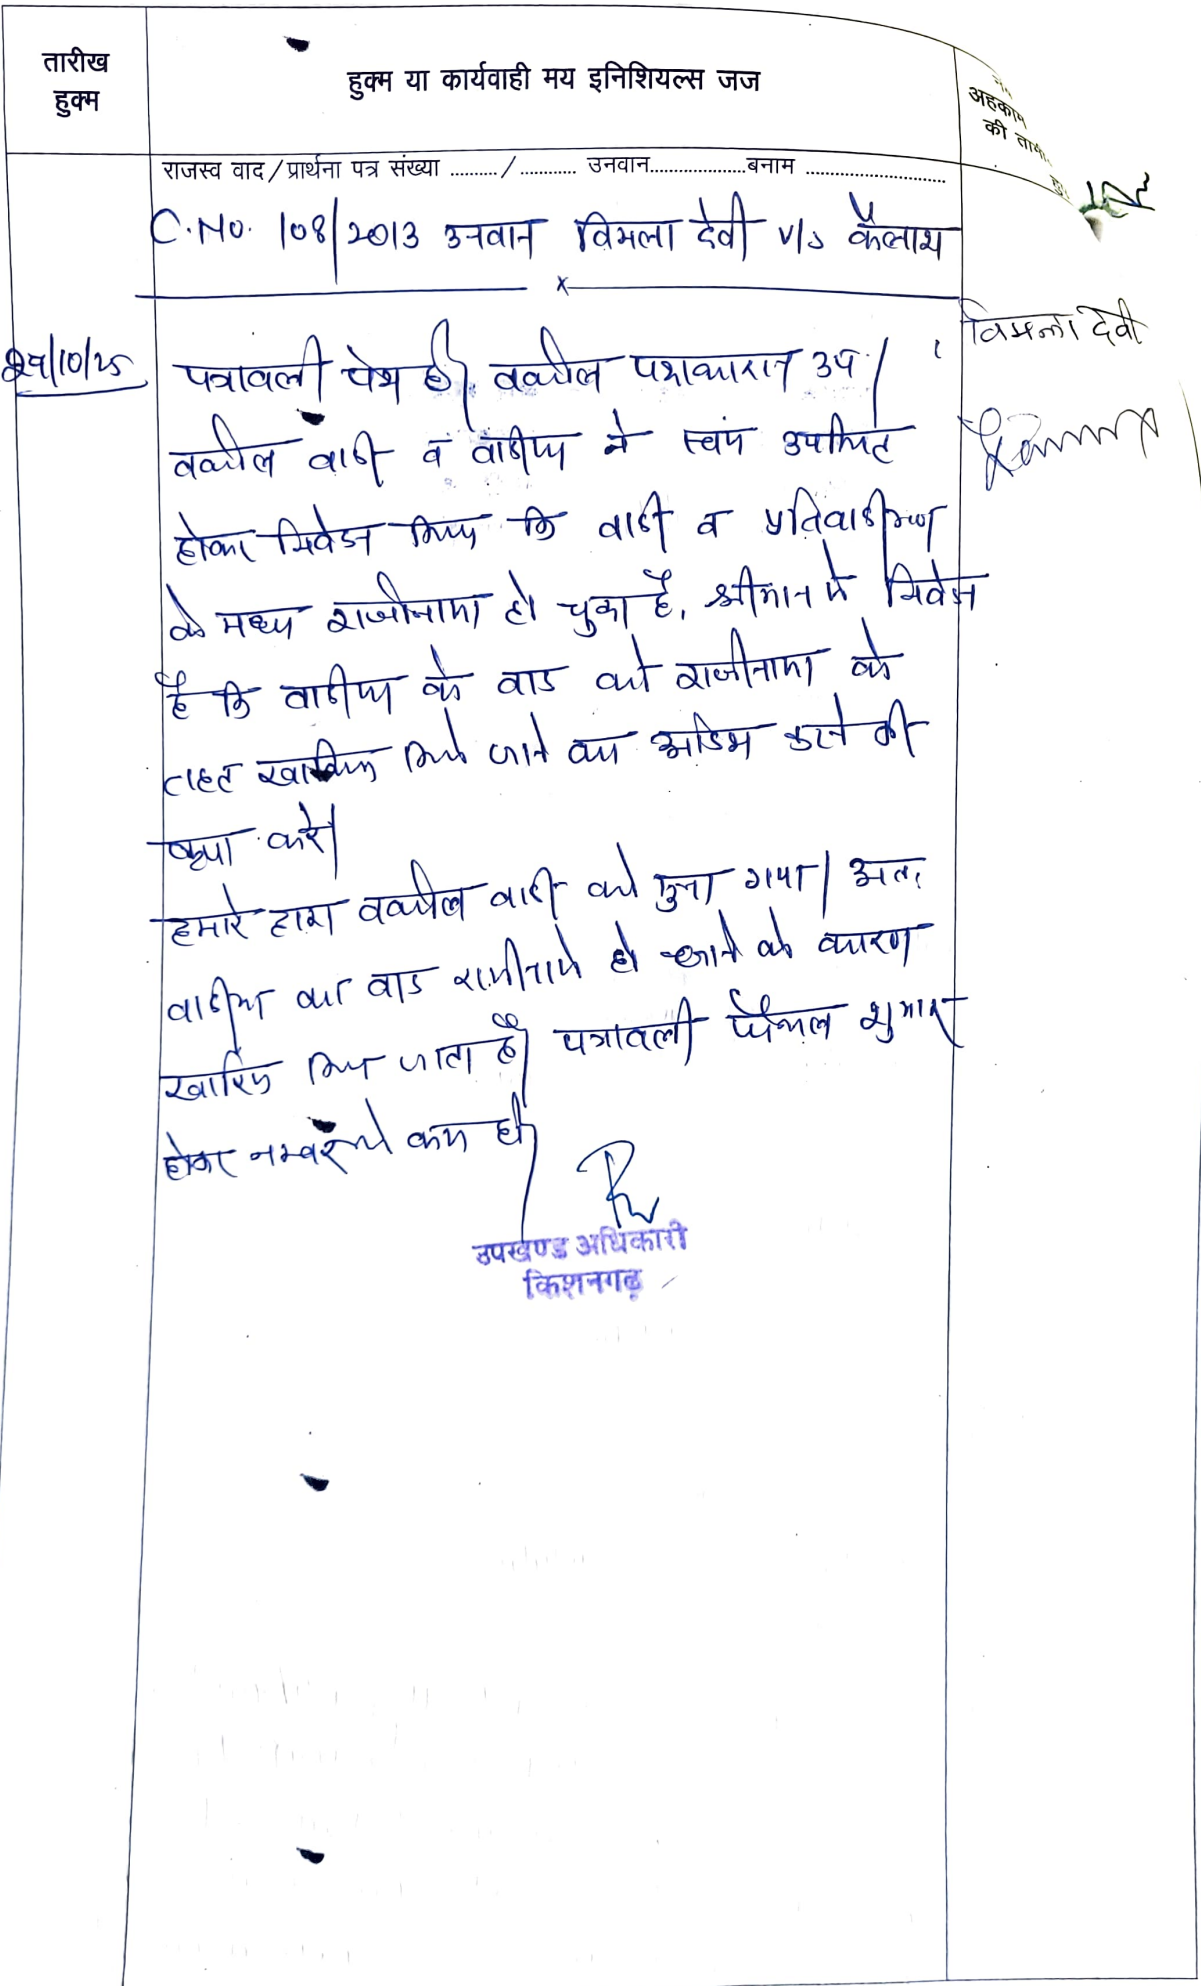 तारीख
हुक्म
हुक्म या कार्यवाही मय इनिशियल्स जज
अहकाम
की
राजस्व वाद/प्रार्थना पत्र संख्या ........../............ उनवान...................बनाम ............................
C.No. 108/2013 उनवान विमला देवी v/s कैलाश
x
विमला देवी
/10/25
पत्रावली पेश है। वकील पक्षकारान उप।
वकील वादी व वादीया ने स्वंय उपस्थित
होकर निवेदन किया कि वादी व प्रतिवादीगण
के मध्य राजीनामा हो चुका है, श्रीमान से निवेदन
है कि वादीया के वाद को राजीनामा के
तहत खारिज किये जाने का आदेश करने की
कृपा करे।
हमारे द्वारा वकील वादी को सुना गया। अतः
वादीया का वाद राजीनामे हो जाने के कारण
खारिज किया जाता है। पत्रावली फैसल शुमार
होकर नम्बर से कम हो।
उपखण्ड अधिकारी
किशनगढ़